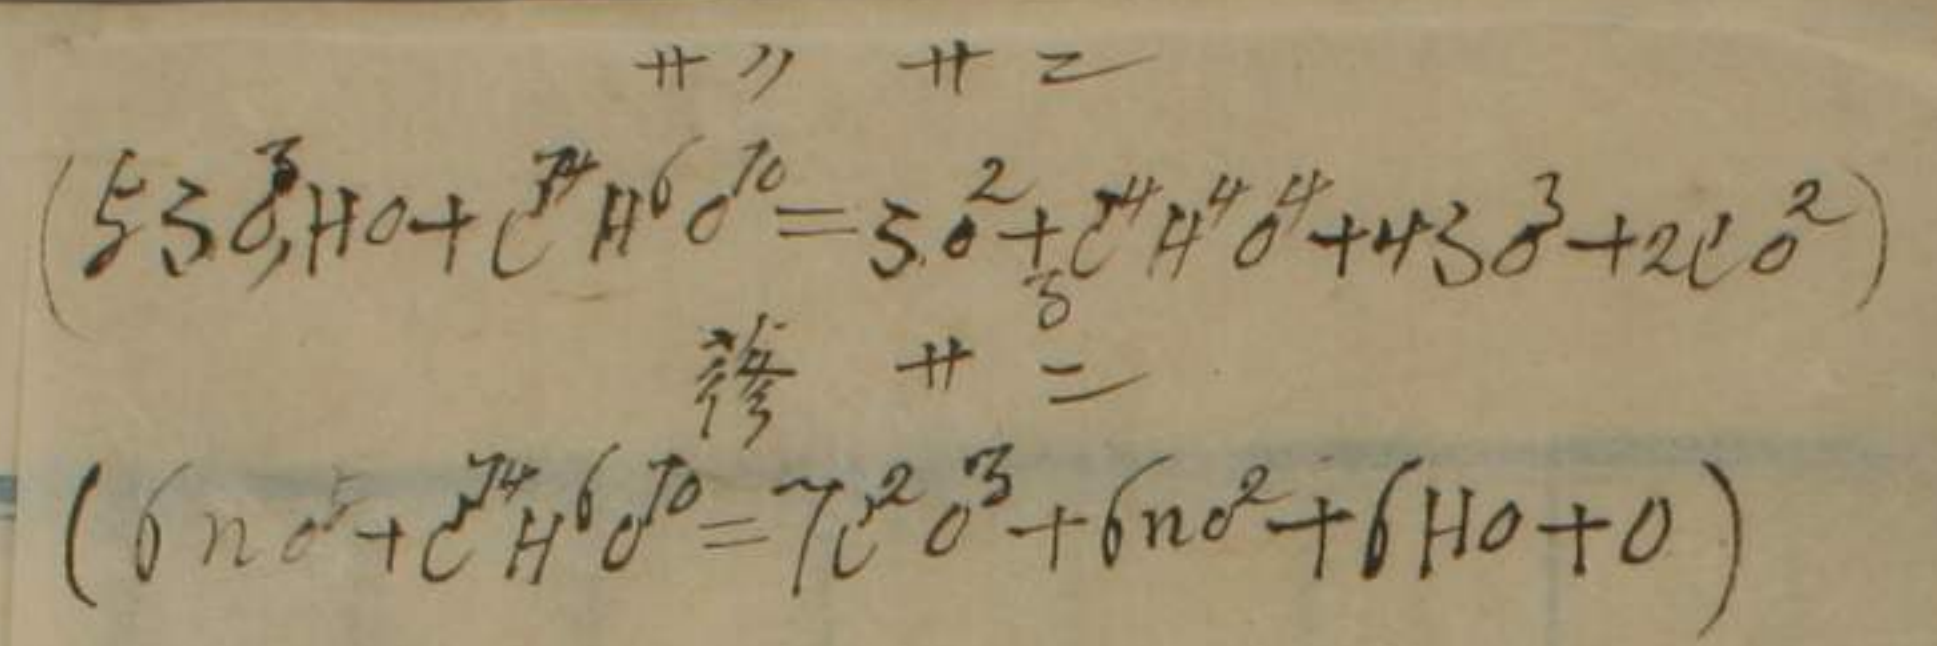 卄〃 卄二
(5SO³,HO+C¹⁴H⁶O¹⁰=SO²+C⁴H⁴O⁴+4SO³+2CO²)
蓚 卄二
(6nO⁵+C¹⁴H⁶O¹⁰=7C²O³+6nO²+6HO+O)